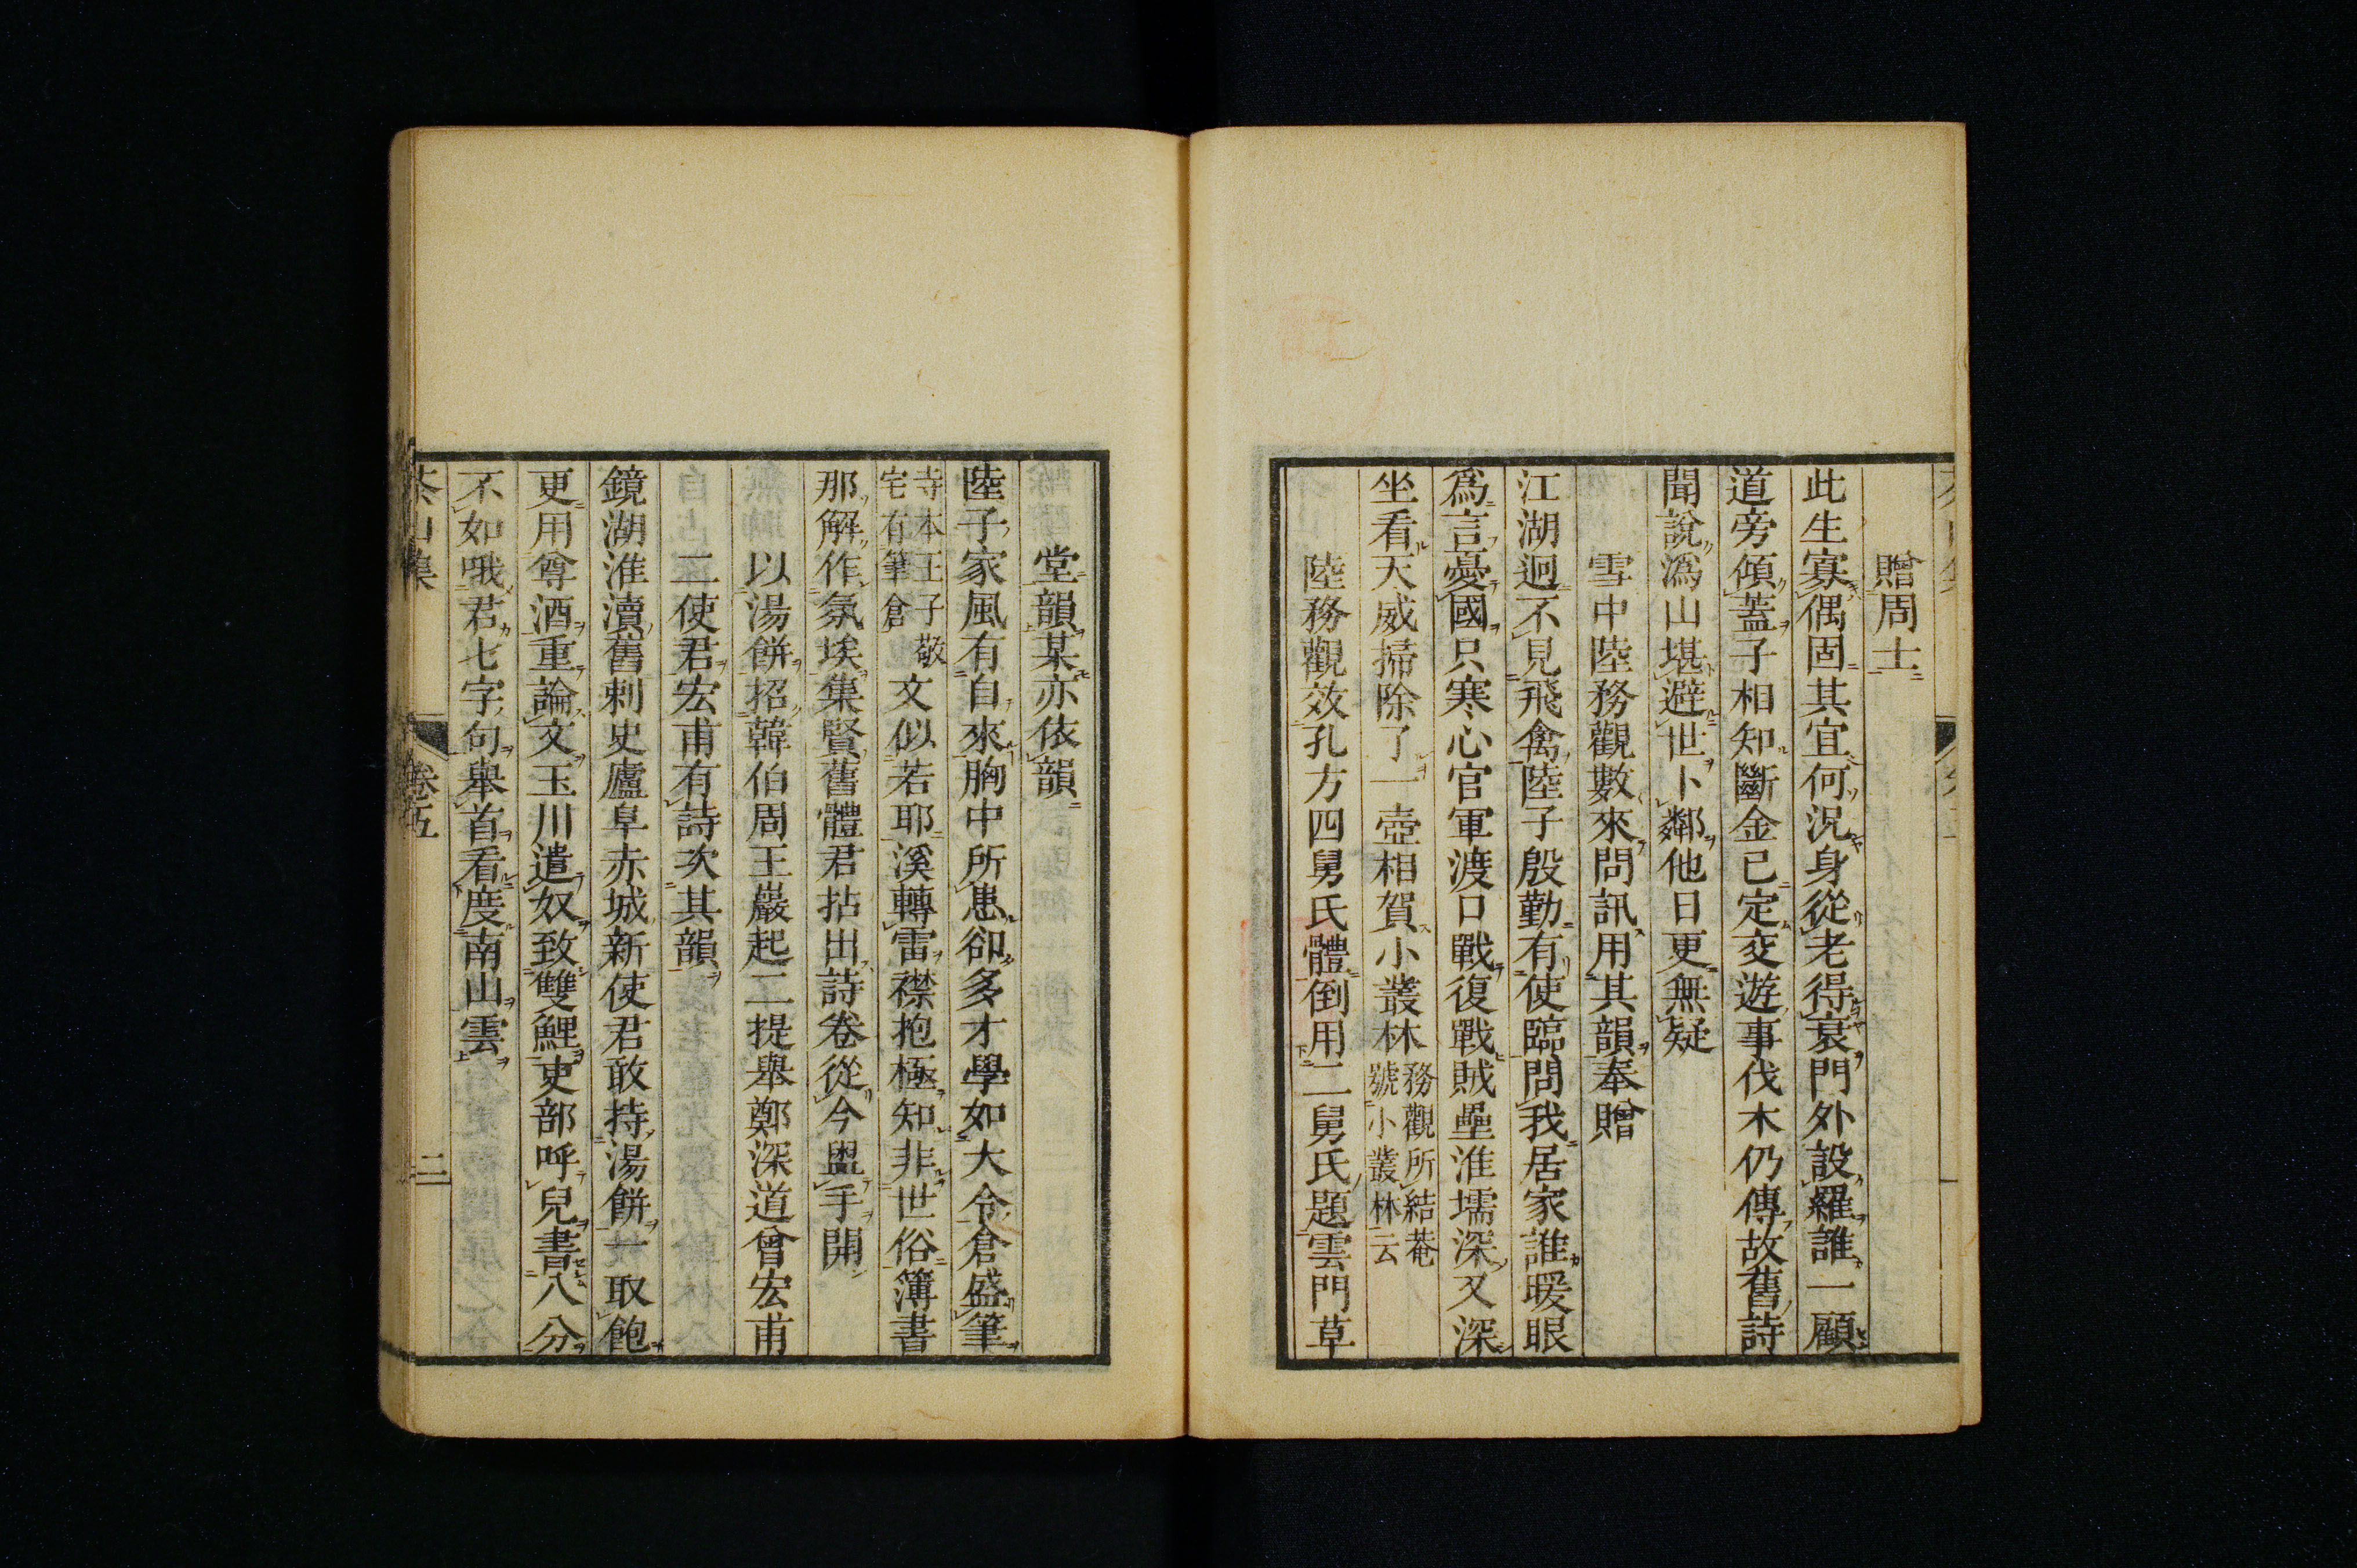 贈周士
此生寡偶固其宜何況身從老得衰門外設羅誰一顧
道旁傾蓋子相知斷金已定交遊事伐木仍傳故舊詩
聞說潙山堪避世卜鄰他日更無疑
雪中陸務觀數來問訊用其韻奉贈
江湖迥不見飛禽陸子殷勤有使臨問我居家誰暖眼
爲言憂國只寒心官軍渡口戰復戰賊壘淮壖深又深
坐看天威掃除了一壺相賀小叢林務觀所結菴號小叢林云
陸務觀效孔方四舅氏體倒用二舅氏題雲門草
堂韻某亦依韻
陸子家風有自來胸中所患卻多才學如大令倉盛筆
寺本王子敬宅有筆倉文似若耶溪轉雷襟抱極知非世俗簿書
那解作氛埃集賢舊體君拈出詩卷從今盥手開
以湯餅招韓伯周王巖起二提舉鄭深道曾宏甫
二使君宏甫有詩次其韻
鏡湖淮瀆舊刺史廬阜赤城新使君敢持湯餅一取飽
更用尊酒重論文玉川遣奴致雙鯉吏部呼兒書八分
不如哦君七字句舉首看度南山雲
茶山集 卷五 二